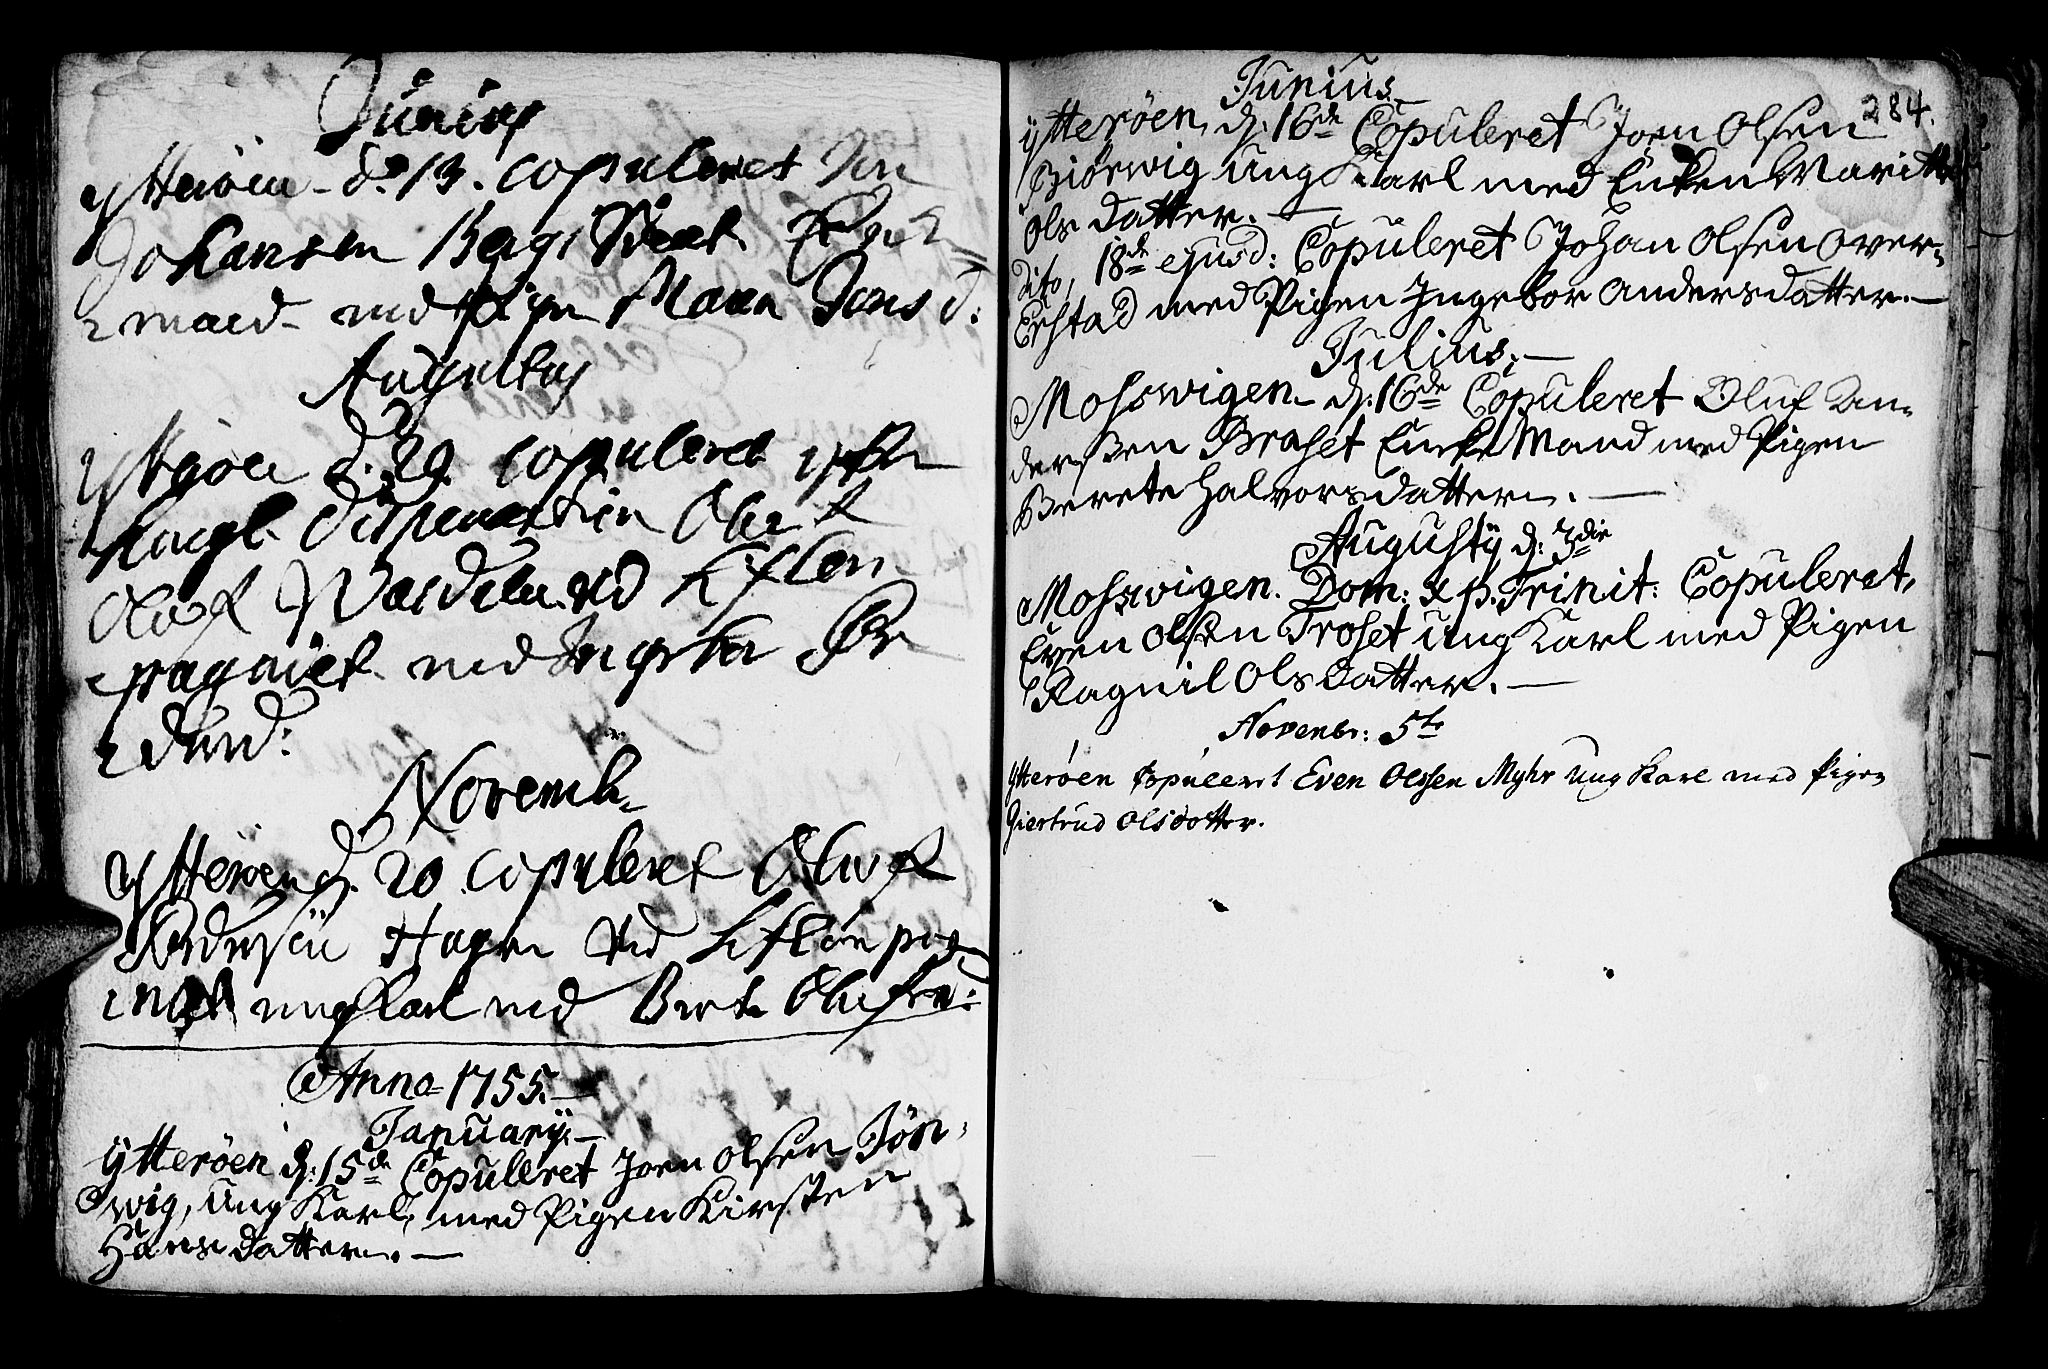 Junius
Ytterøen d. 13. copuleret Jon
Johansen Berg
mand med Pigen Maren Jons d:
Augustus
Ytterøen d. 29. copuleret efter
Kongl. Dispensation
Oluf ved Liflom
med Ingebor
d:
Novemb.
Ytterøen d. 20. Copuleret Oluf
Andersen Hagen ved
ung Karl med Berte Olufs d:
Anno 1755.
January.
Ytterøen d: 15de Copuleret Joen Olsen Jøn-
wig, ung Karl, med Pigen Kirsten
Hans datter.
284.
Junius.
Ytterøen, d: 16de Copuleret Joen Olsen
Biørwig ung Karl med Enken Maritte
Ols datter.
Dito, 18de ejusd: Copuleret Johan Olsen Over-
Erstad med Pigen Ingebor Andersdatter.
Julius.
Moswigen. d: 16de Copuleret Oluf An-
derssen Braset Enke Mand med Pigen
Berete Halvorsdatter.
Augusty d: 3die
Moswigen. Dom: X p. Trinit: Copuleret,
Even Olsen Troset ung Karl med Pigen
Ragnil Ols datter.
Novembr: 5te
Ytterøen Copuleret Even Olssen Myhr ung Karl med Pigen
Giertrud Olsdatter.